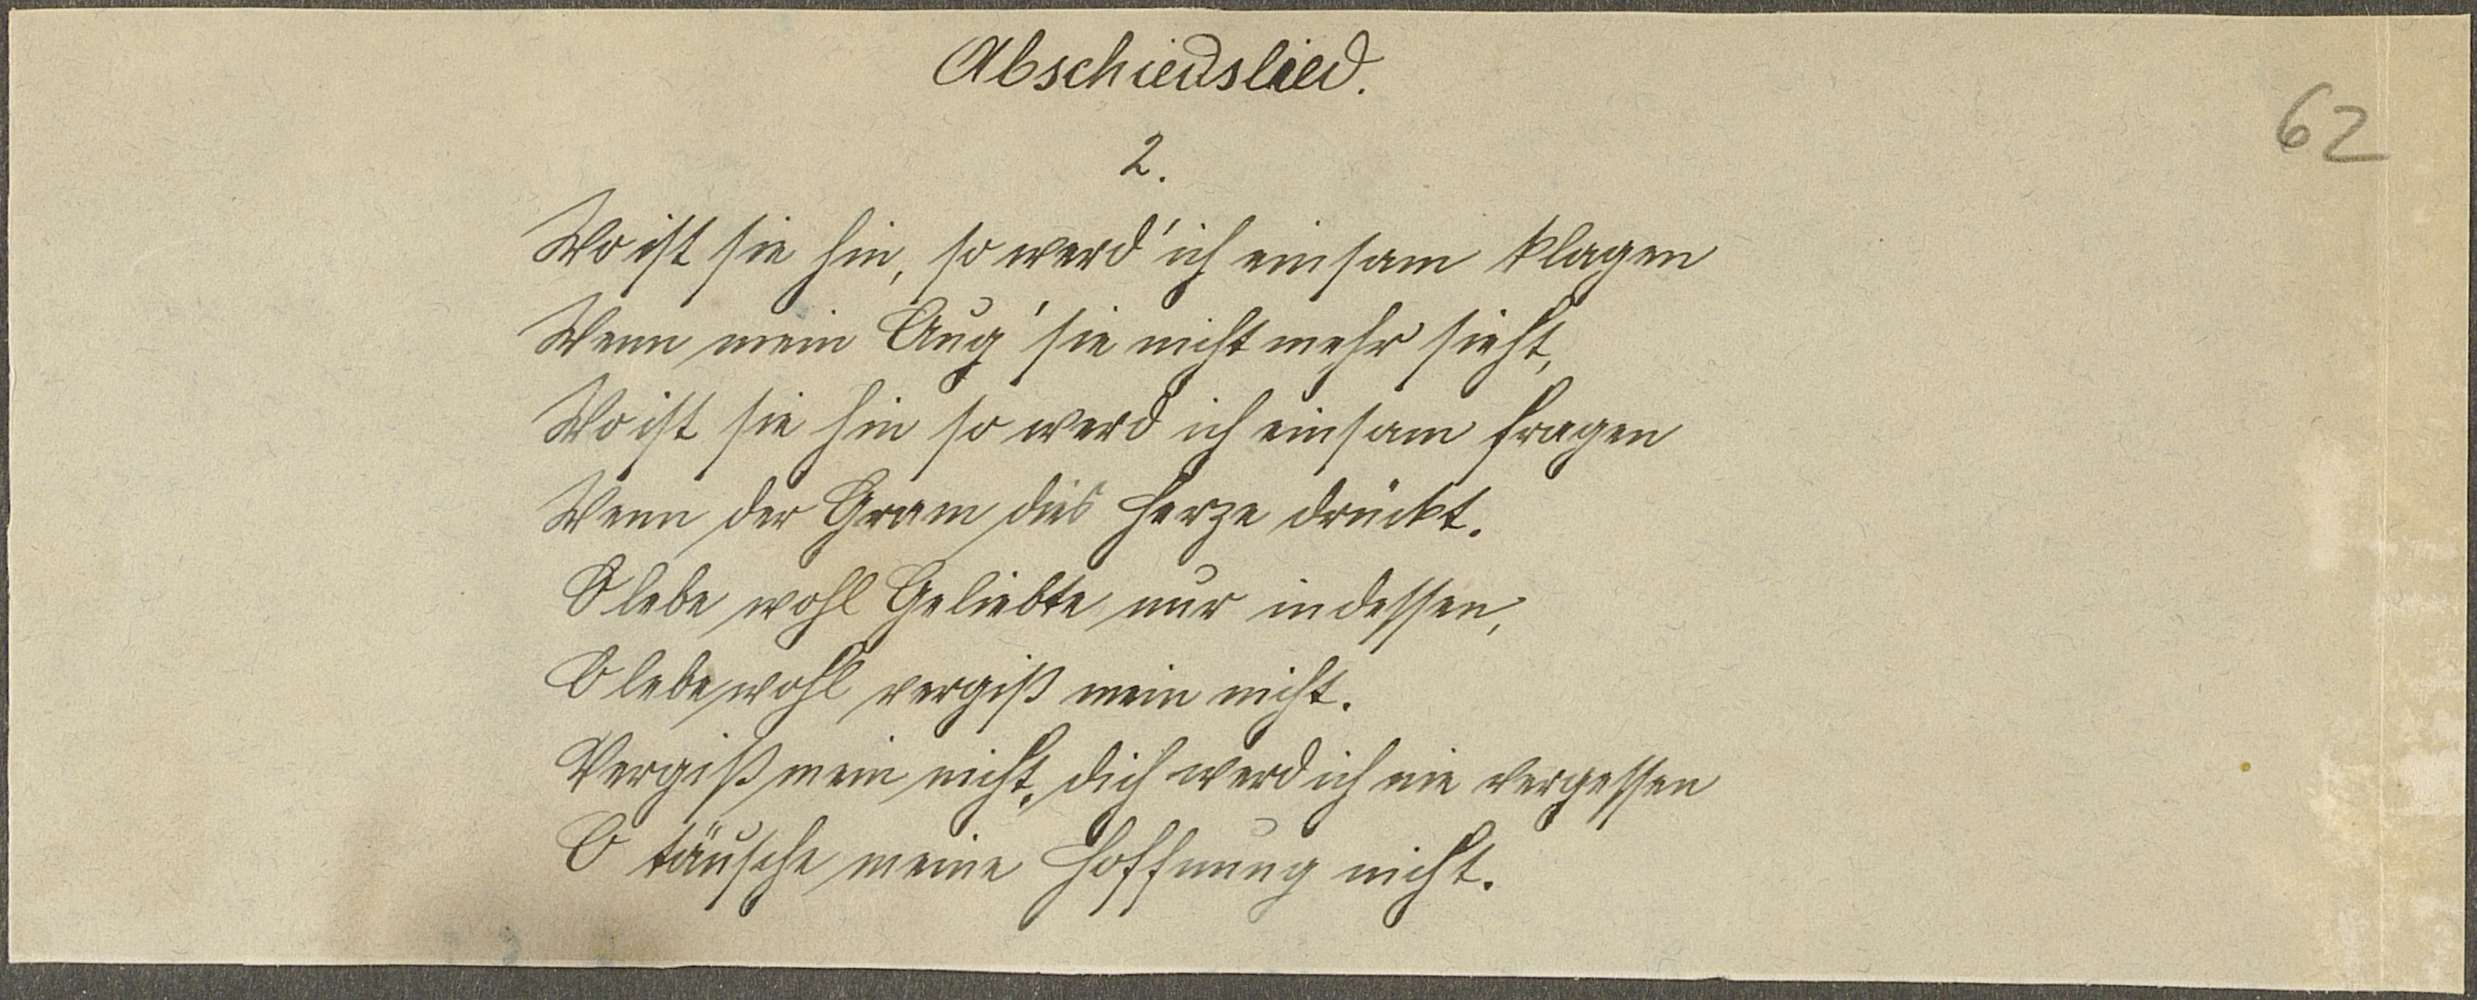 Abschiedslied.
62
2.
Wo ist sie hin, so werd' ich einsam klagen
Wenn mein Aug' sie nicht mehr sieht,
Wo ist sie hin so werd ich einsam fragen
Wenn der Gram dies Herze drückt.
O lebe wohl Geliebte nur indessen,
O lebe wohl vergiß mein nicht.
Vergiß mein nicht, dich werd ich nie vergessen
O täusche meine Hoffnung nicht.